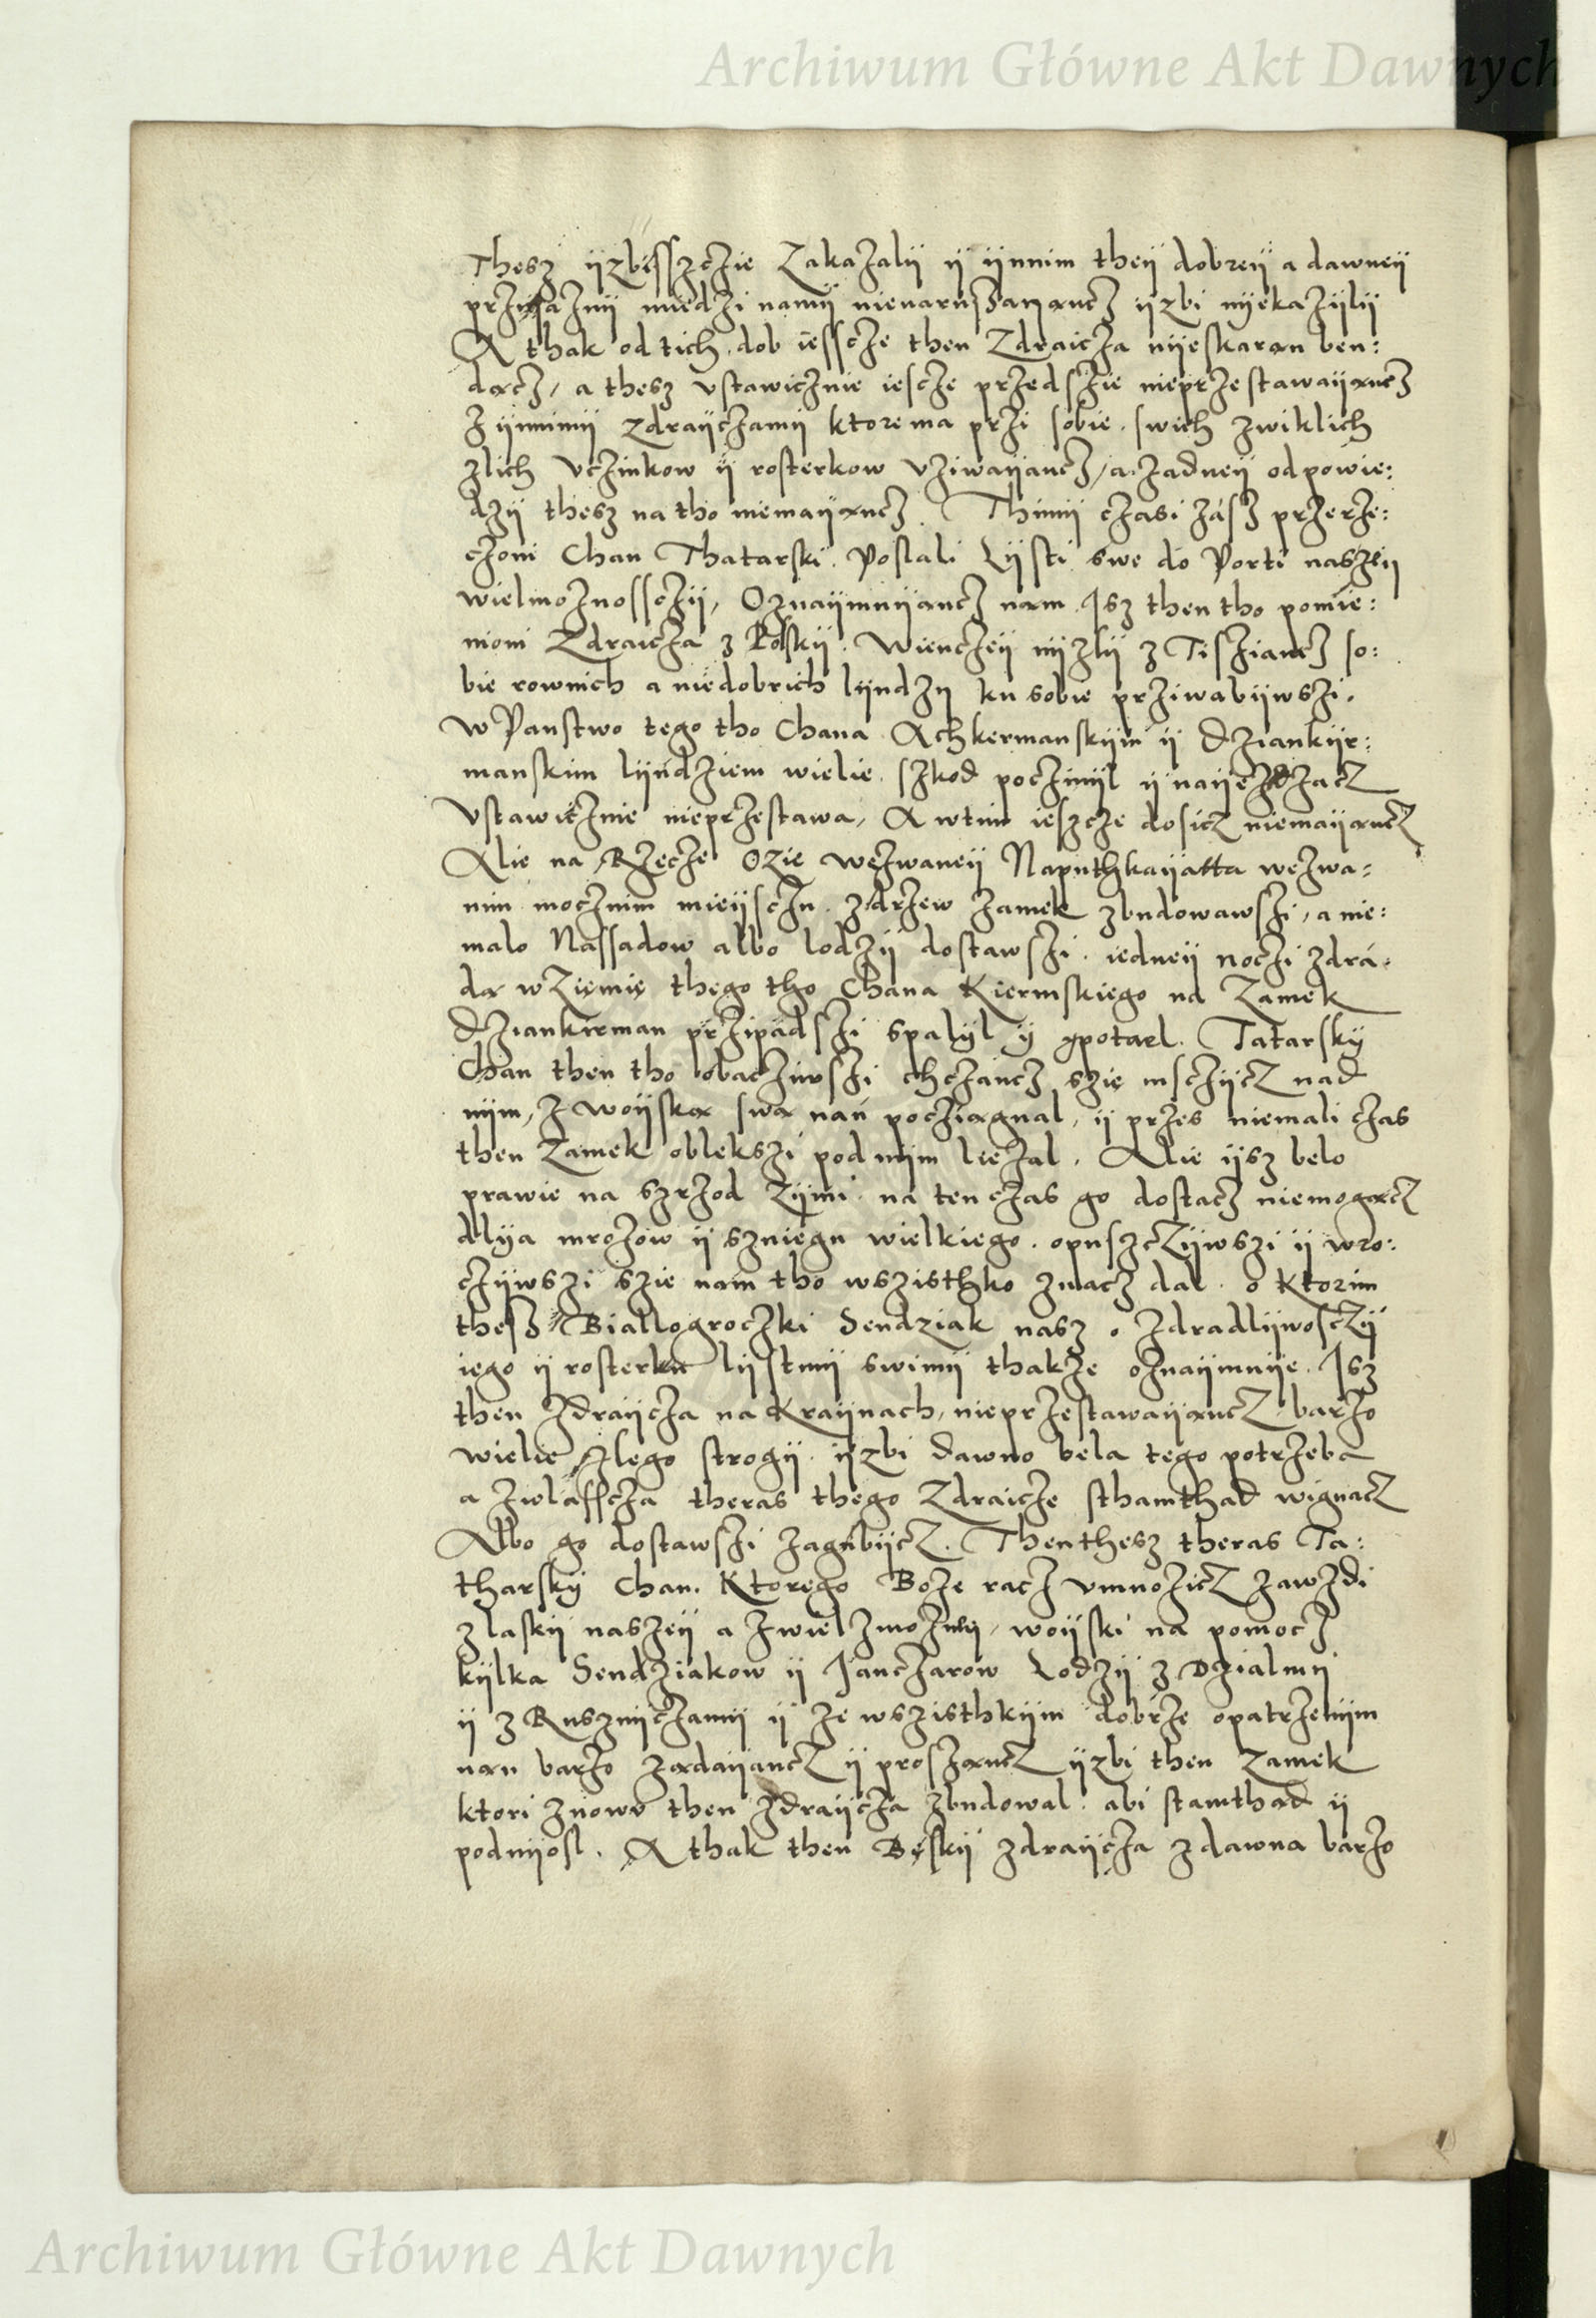 Archiwum Główne Akt Dawnych
Thesz ijzbisszczie Zakazalij ij ijnnim theij dobreij a dawneij
przijaznij miedzi namij nienarusżaiancz ijzbi nijekazijlij
A thak od tich dob iesscze then Zdraicza nijeskaran ben:
dącz, a thesz vstawicznie iescze przedszie nieprzestawaijancz
z ijnnimij zdraijczamij ktore ma przi sobie swich zwiklich
zlich vczinkow ij rosterkow vziwaijancz, a zadneij odpowie:
dzij thesz na tho niemaijancz. Thimij czasi zasz przerze:
czoni Chan Thatarski Poslali Lijsti swe do Porti naszeij
wielmoznossczij, Oznaijmuijancz nam Isz then tho pomie:
nioni Zdraicza z Polskij Wienczeij nijzlij z Tisziancz so:
bie rownich a niedobrich lijudzij ku sobie prziwabijwszi.
W Panstwo tego tho Chana Achkermanskijm ij Dziankijr:
manskim lijudziem wielie szkod poczinijl ij naijezdzacz
Vstawicznie nieprzestawa, A wtim ieszcze dosicz niemaijancz
Alie na Rzecze Ozie wezwaneij Naputhkaijatta wezwa:
nim mocznim mieijsczu z drzew zamek zbudowawszi, a nie:
malo Nassadow albo lodzij dostawszi iedneij noczi zdra:
da w Ziemie thego tho Chana Kiermskiego na Zamek
Dziankirman przipadszi spalijl ij spotael. Tatarskij
Chan then tho obacziwszi chczancz szie msczijcz nad
nijm, z woijska swa nan pocziagnal, ij przes niemali czas
then Zamek oblekszi pod nijm liezal. Alie ijsz belo
prawie na szrzod Zijmi na ten czas go dostacz niemogacz
dlija mrozow ij szniegu wielkiego. opuszczijwszi ij wro:
czijwszi szie nam tho wszisthko znacz dal. o ktorim
thesz Biallogroczki Sendziak nasz o zdradlijwosczij
iego ij rosterku lijstmij swimij thakze oznaijmuije. Isz
then zdraijcza na Kraijnach, nieprzestawaijancz barzo
wielie zlego strogij ijzbi dawno bela tego potrzeba
a zwlasscza theras thego Zdraicze sthamthad wignacz
Albo go dostawszi zagubijcz. Then thesz theras Ta:
tharskij Chan. Ktorego Boze racz vmnozicz zawzdi
z laskij naszeij a z wielzmoznij, woijski na pomocz
kijlka Sendziakow ij Janczarow Lodzij z Dzialmij
ij z Rusznijczamij ij ze wszisthkijm dobrze opatrzenijm
nan barzo zadaijancz ij proszancz ijzbi then Zamek
ktori znowu then zdraijcza zbudowal. abi stamthad ij
podnijosl. A thak then Beskij zdraijcza z dawna barzo
Archiwum Główne Akt Dawnych